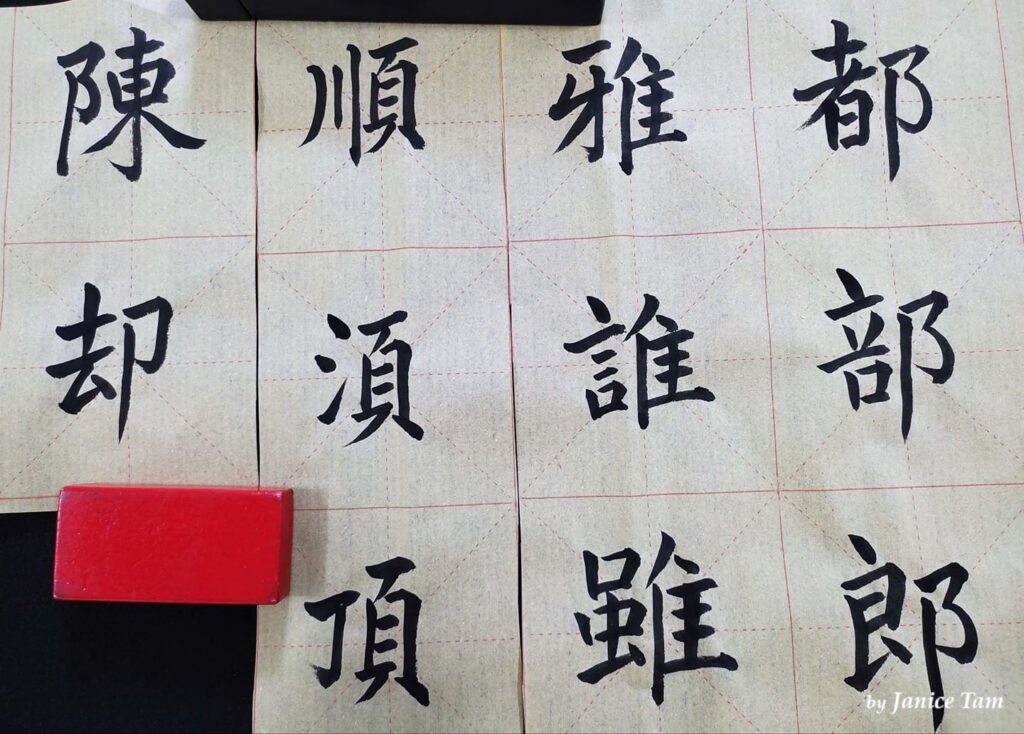 都部郎
雅誰雖
順湏頂
陳却
by Janice Tam